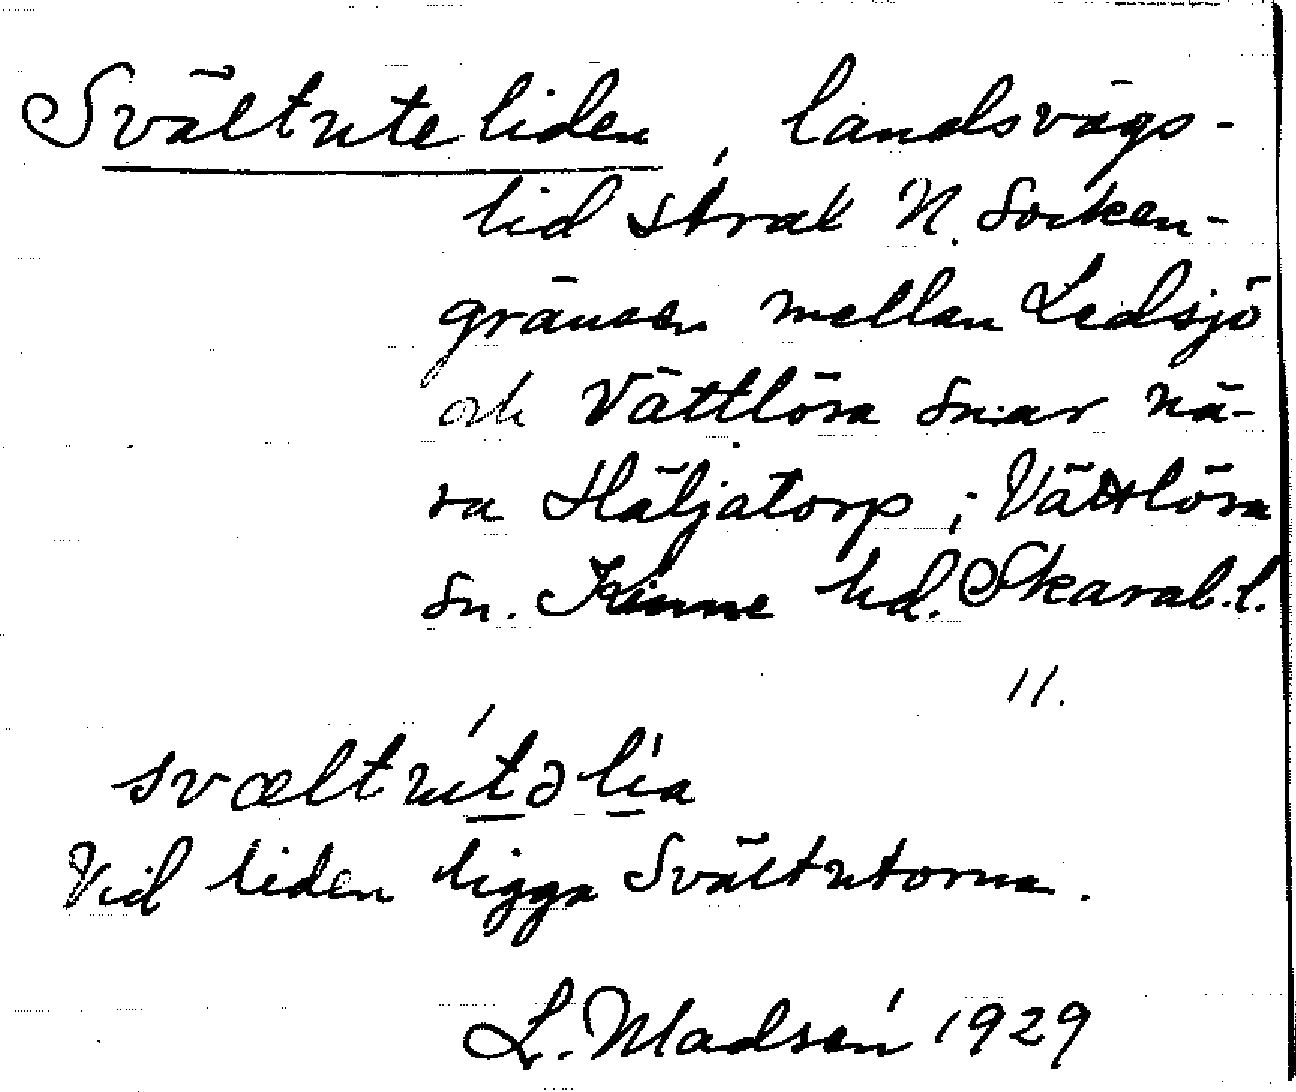 Svältuteliden, landsvägs-
lid strax N. Socken-
gränsen mellan Ledsjö
och Vättlösa snar nä-
ra Häljatorp; Vättlösa
sn. Kinne hd. Skarab. l.
11.
svæltútəlía
Vid liden ligga Svältutorna.
L. Madsén 1929